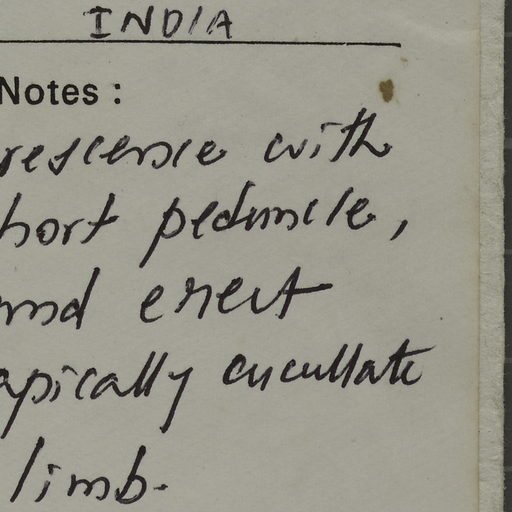 INDIA
Notes :
rescence with
hort peduncle,
and erect
apically cucullate
limb.